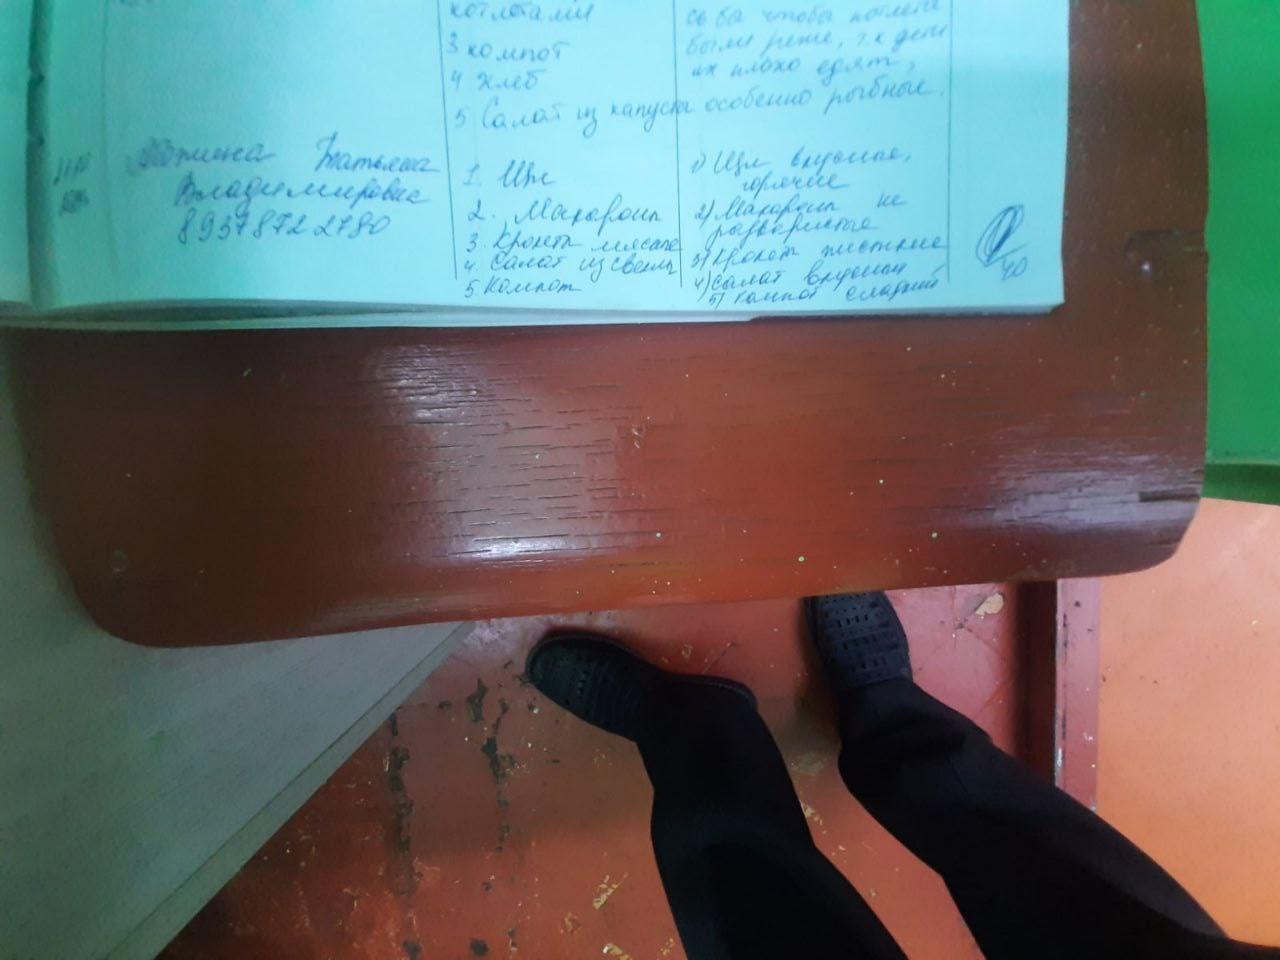 котлетами
3 компот
4 хлеб
5 Салат из капусты
чтобы котлета
были реже, т.к дети
их плохо едят,
особенно рыбные.
Татьяна
Владимировна
89378722780
1. Щи
2. Макароны
3. Крокета мясная
4. Салат из свеклы
5. Компот
1) Щи вкусные,
горячие
2) Макароны не
разваристые
3) Крокет
4) Салат вкусный
5) Компот сладкий
40